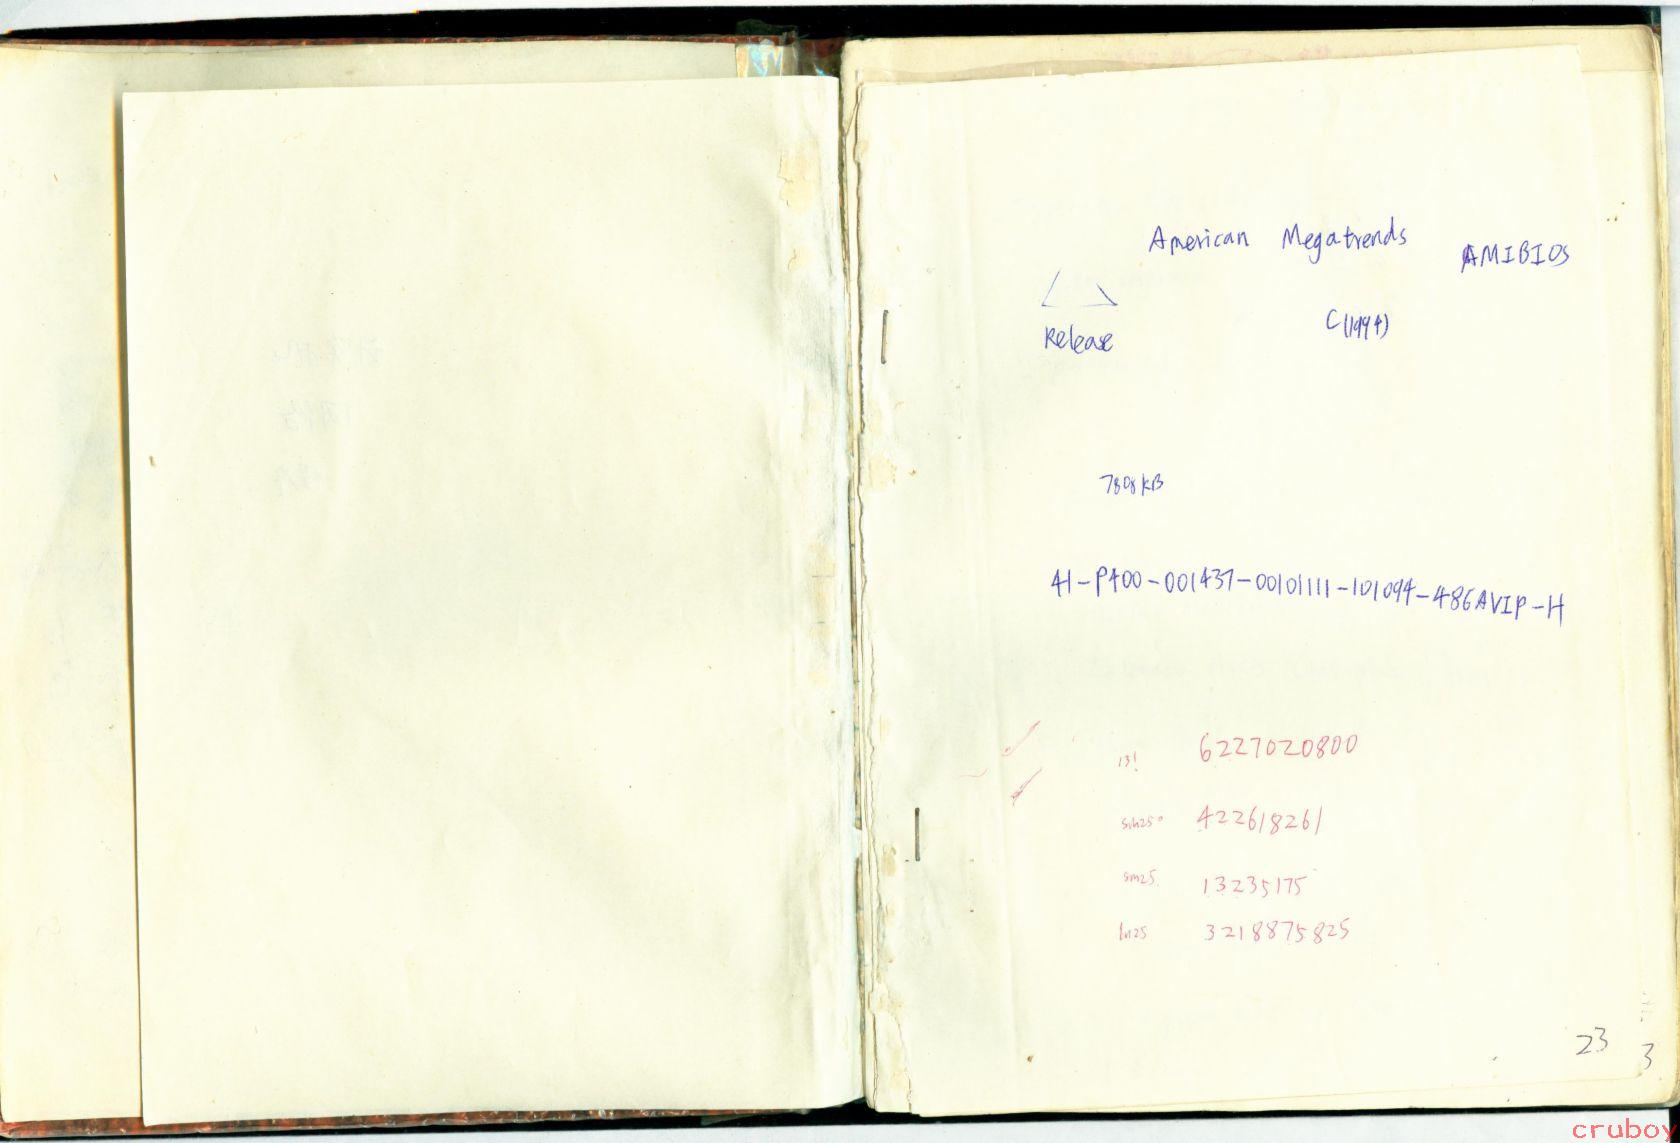 American Megatrends AMIBIOS
Release C(1994)
7808KB
41-P400-001437-00101111-101094-486AVIP-H
13! 6227020800
sin25° 422618261
sin25 13235175
ln25 3218875825
23
3
cruboy